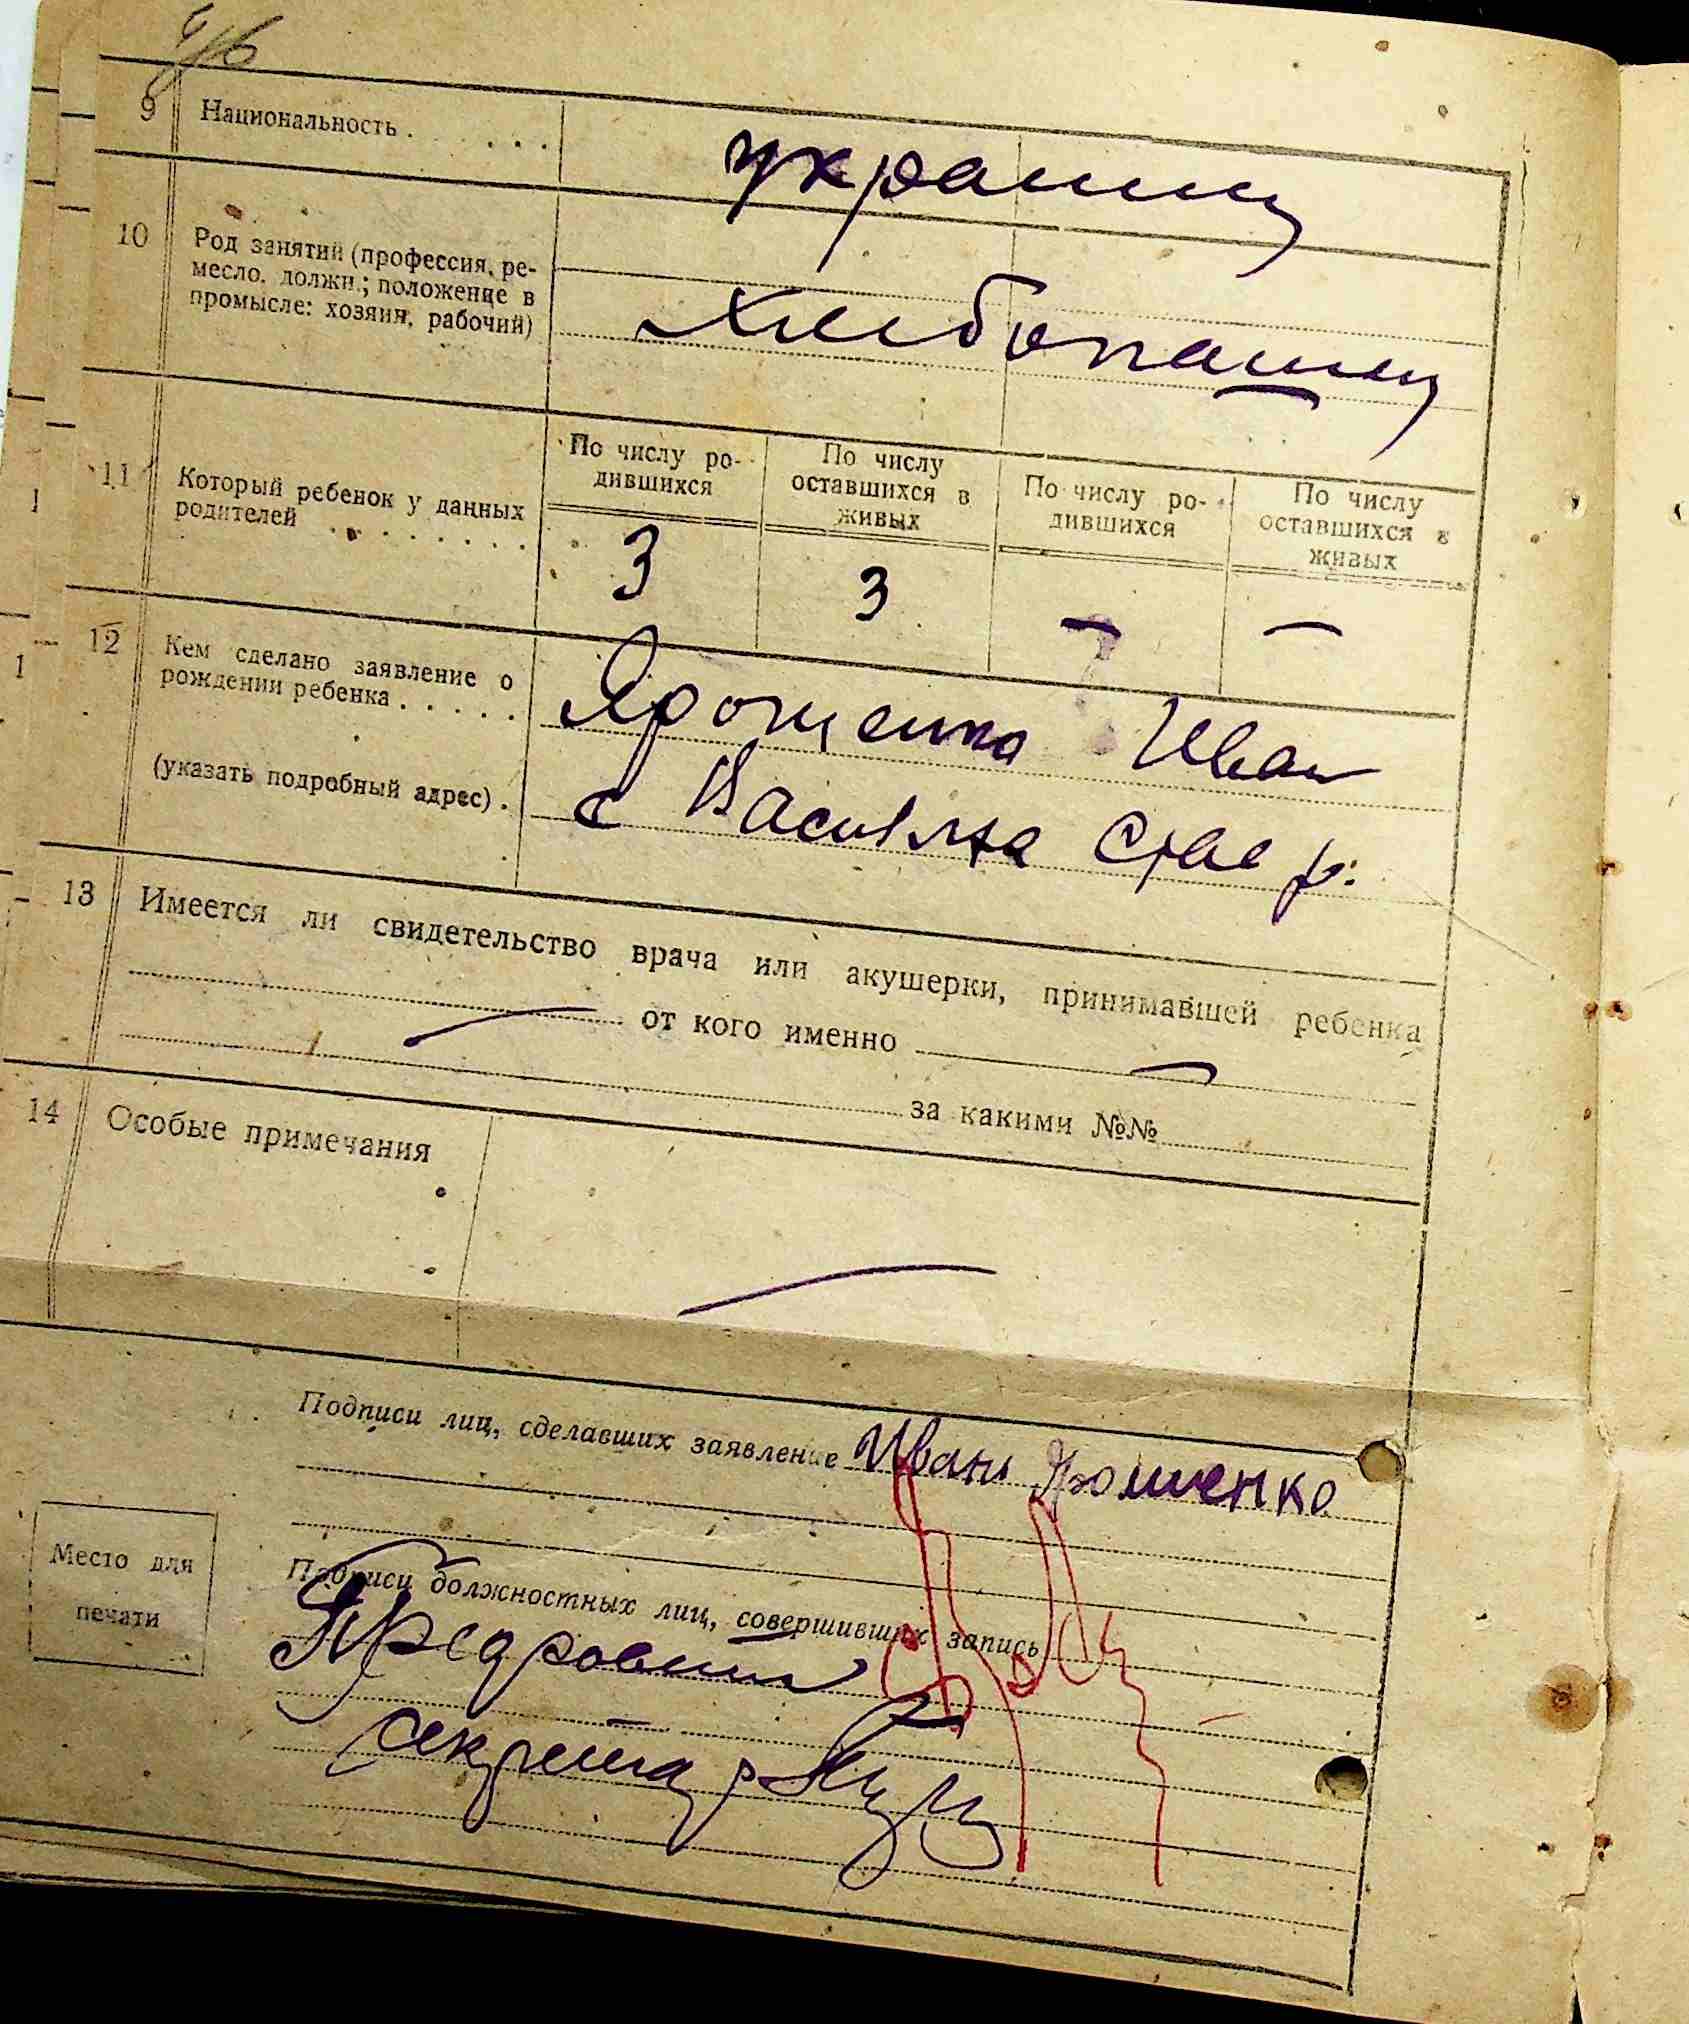 9 Национальность . . . . украинц
10 Род занятий (профессия, ре-
месло, должн.; положение в
промысле: хозяин, рабочий)
хлебопашц
11 Который ребенок у данных
родителей . . . . . . . .
По числу ро-
дившихся
По числу
оставшихся в
живых
По числу ро-
дившихся
По числу
оставшихся в
живых
3 3 — —
12 Кем сделано заявление о
рождении ребенка . . . . .
(указать подробный адрес) .
Ярошенко Иван
с Васильевка
13 Имеется ли свидетельство врача или акушерки, принимавшей ребенка
— от кого именно —
за какими №№
14 Особые примечания
—
Подписи лиц, сделавших заявление Иван Ярошенко
Место для
печати
Подписи должностных лиц, совершивших запись
секретар